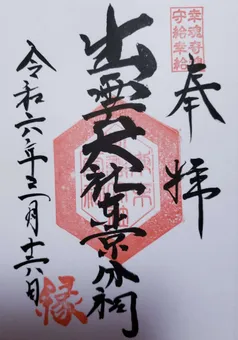 奉拝
幸魂奇魂
守給幸給
出雲大社東京分祠
令和六年三月十六日
縁